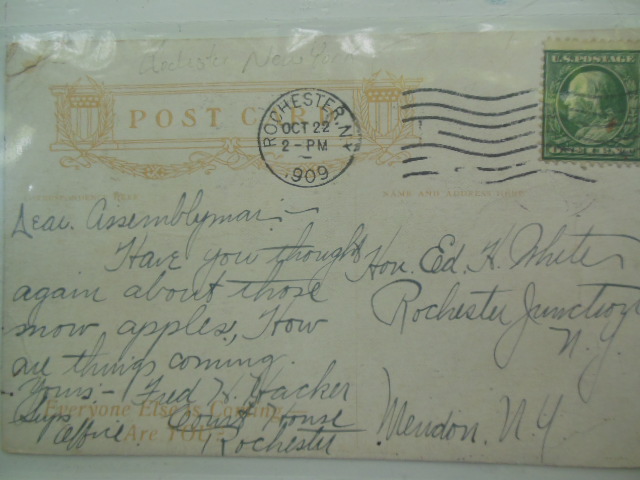 Rochester New York
POST CARD
ROCHESTER, N.Y.
OCT 22
2-PM
1909
U.S. POSTAGE
NAME AND ADDRESS HERE
Dear Assemblyman:-
Have you thought
again about those
snow apples, How
are things coming.
Yours:- Fred W. Hacker
Sups Court House
Office Rochester
Everyone Else is Coming
Are YOU?
Hon. Ed. H. White
Rochester Junction
N.Y.
Mendon, N.Y.